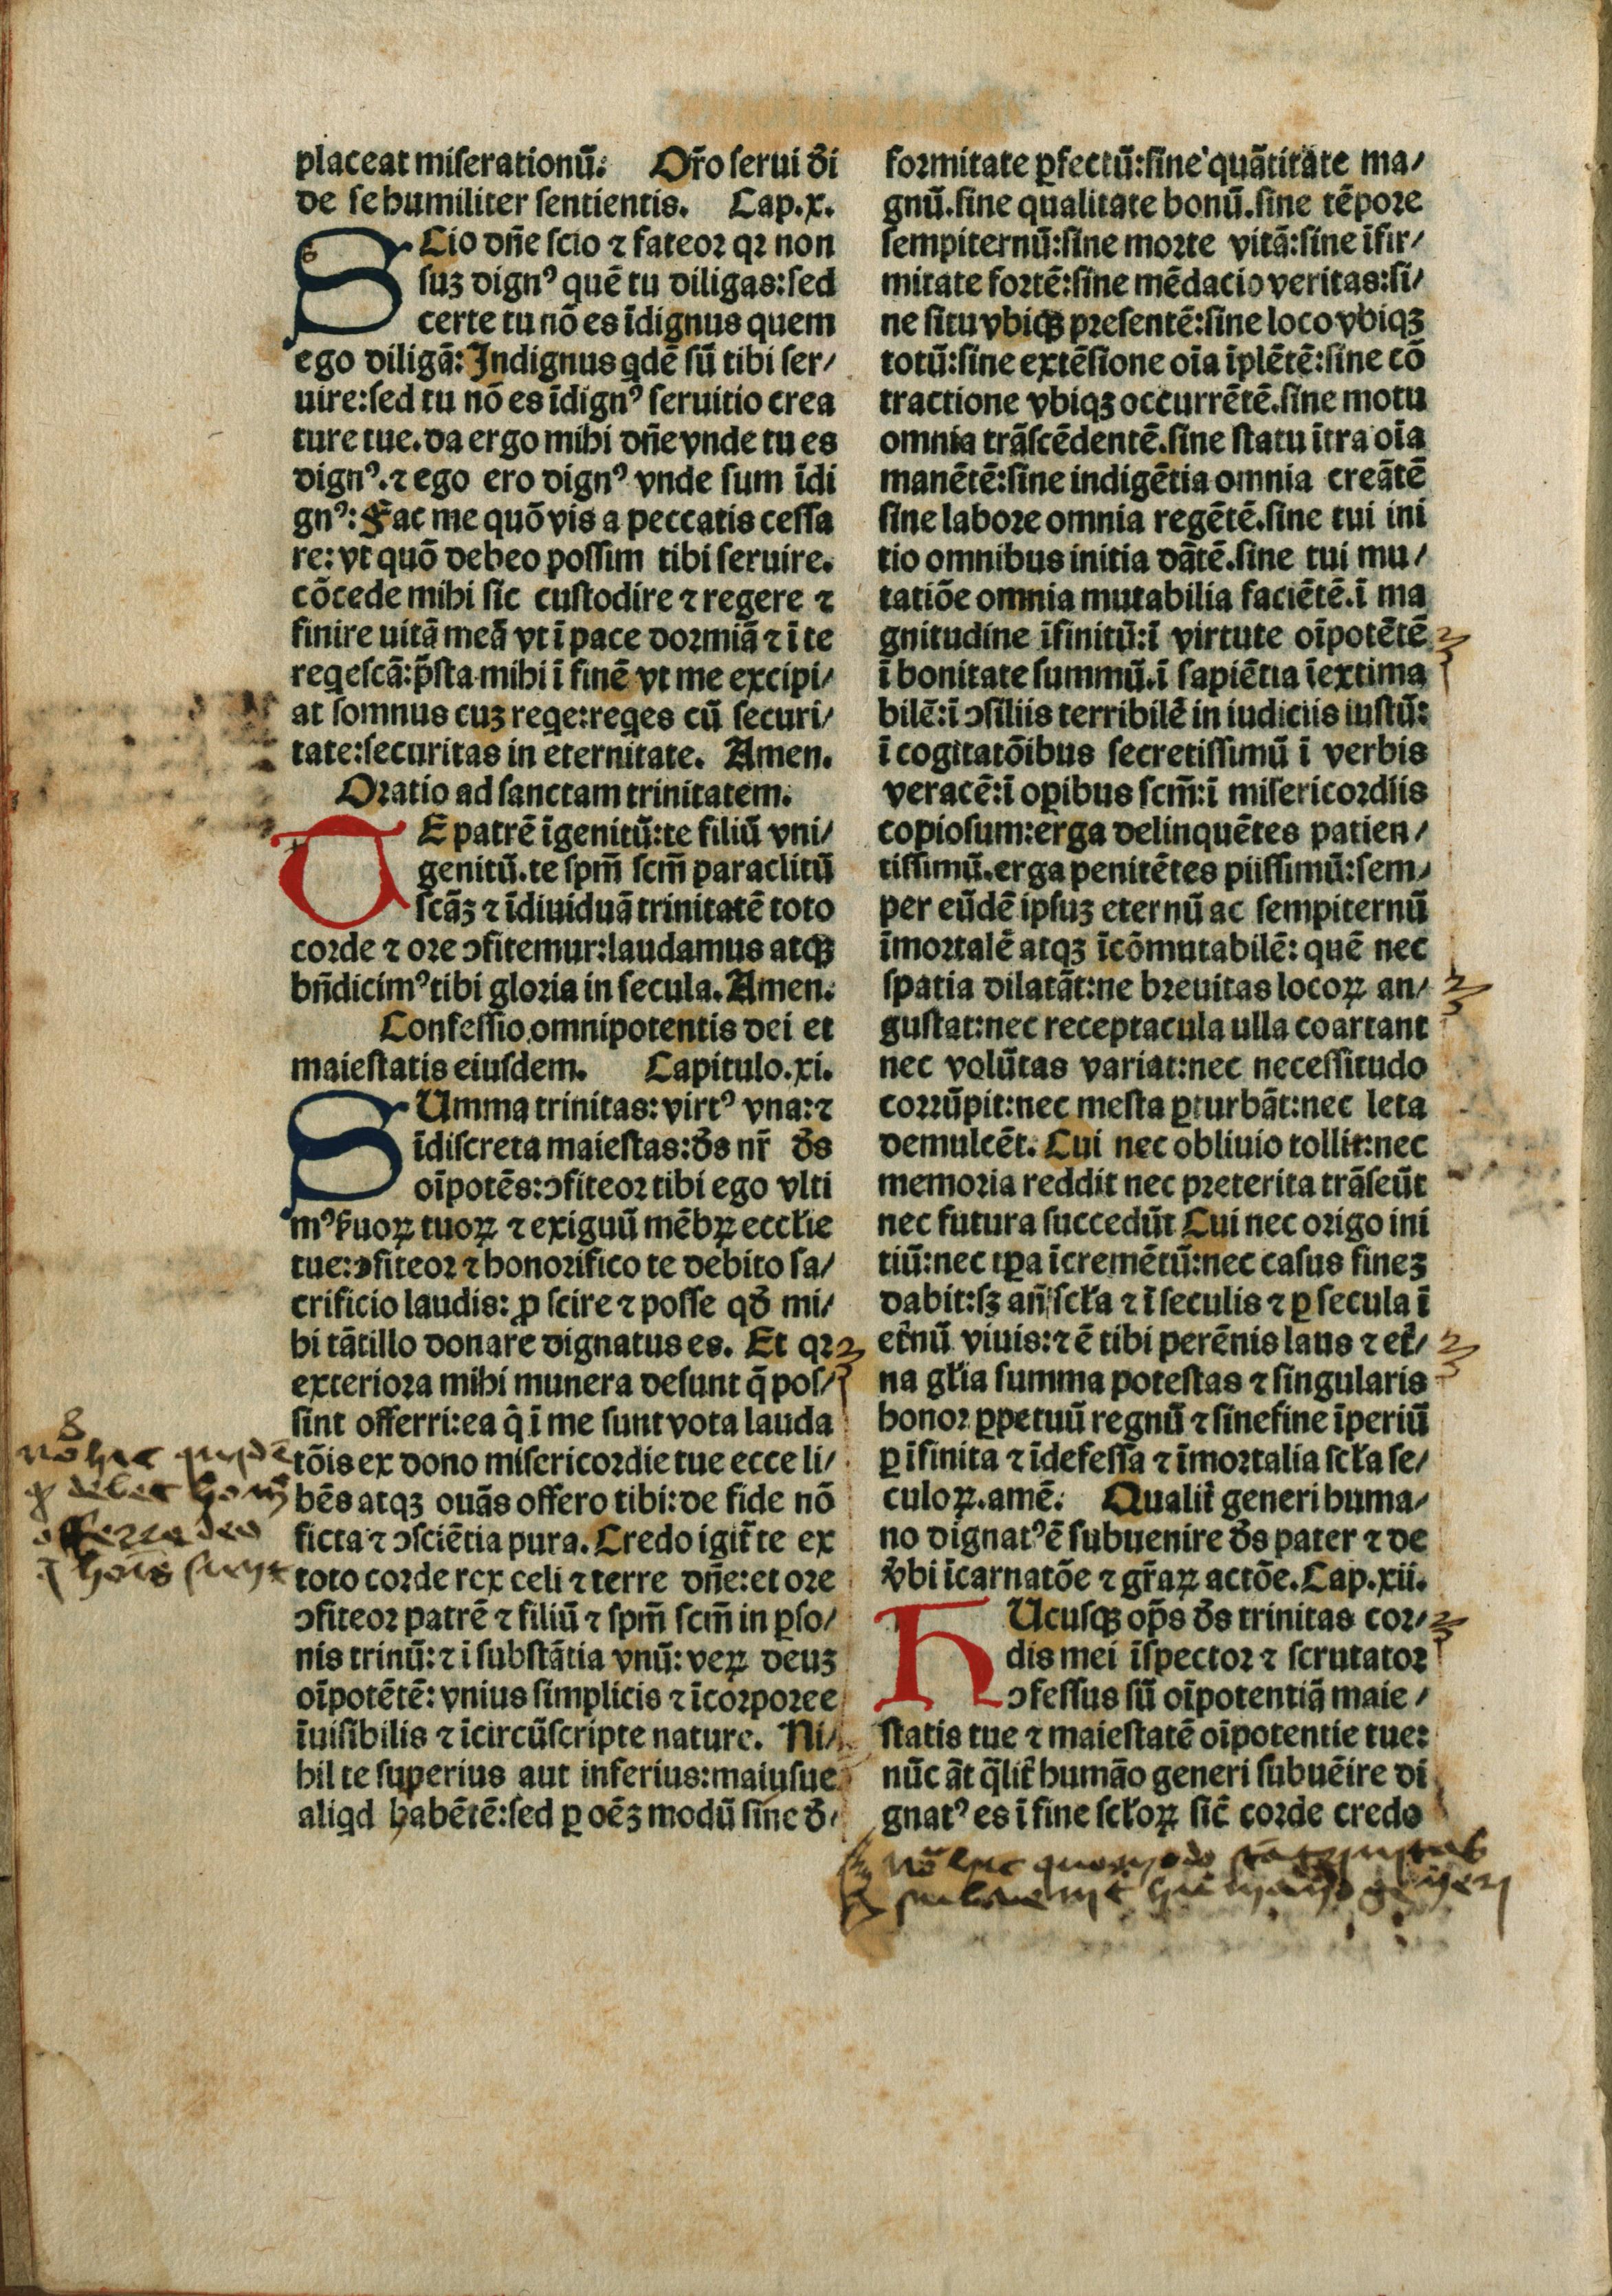 placeat miserationū. Or̄o serui d̄i
de se humiliter sentientis. Cap.x.
SCio dn̄e scio ⁊ fateor qꝛ non
suꝫ dignꝰ quē tu diligas:sed
certe tu nō es īdignus quem
ego diligā: Indignus qdē sū tibi ser/
uire:sed tu nō es īdignꝰ seruitio crea
ture tue.da ergo mihi dn̄e vnde tu es
dignꝰ.⁊ ego ero dignꝰ vnde sum īdi
gnꝰ: Fac me quō vis a peccatis cessa
re: vt quō debeo possim tibi seruire.
cōcede mihi sic custodire ⁊ regere ⁊
finire uitā meā vt ī pace dormiā ⁊ ī te
reqescā:p̄sta mihi ī finē vt me excipi/
at somnus cuꝫ reqe:reqes cū securi/
tate:securitas in eternitate. Amen.
Oratio ad sanctam trinitatem.
TE patrē īgenitū:te filiū vni/
genitū.te spm̄ scm̄ paraclitū
scāꝫ ⁊ īdiuiduā trinitatē toto
corde ⁊ ore ↄfitemur:laudamus atqꝫ
bn̄dicimꝰ tibi gloria in secula. Amen.
Confessio omnipotentis dei et
maiestatis eiusdem. Capitulo.xi.
SUmma trinitas: virtꝰ vna: ⁊
īdiscreta maiestas: d̄s nr̄ d̄s
oīpotēs:ↄfiteor tibi ego vlti
mꝰ s̄uoꝝ tuoꝝ ⁊ exiguū mēbꝝ eccłie
tue:ↄfiteor ⁊ honorifico te debito sa/
crificio laudis: ꝓ scire ⁊ posse qd̄ mi/
hi tātillo donare dignatus es. Et qꝛ
exteriora mihi munera desunt q̄ pos/
sint offerri:ea q̄ ī me sunt vota lauda
tōis ex dono misericordie tue ecce li/
bēs atqꝫ ouās offero tibi: de fide nō
ficta ⁊ ↄsciētia pura. Credo igit̄ te ex
toto corde rex celi ⁊ terre dn̄e: et ore
ↄfiteor patrē ⁊ filiū ⁊ spm̄ scm̄ in ꝑso/
nis trinū: ⁊ ī substātia vnū: veꝝ deuꝫ
oīpotētē: vnius simplicis ⁊ īcorporee
īuisibilis ⁊ īcircūscripte nature. Ni/
hil te superius aut inferius:maiusue
aliqd habētē:sed ꝑ oēꝫ modū sine d̄/
nō hic quidē
ꝙ debet hom̄
offerre deo
formitate ꝑfectū:sine quātitate ma/
gnū.sine qualitate bonū.sine tēpore
sempiternū:sine morte vitā:sine īfir/
mitate fortē:sine mēdacio veritas:si/
ne situ vbiqꝫ presentē:sine loco vbiqꝫ
totū:sine extēsione oīa īplētē:sine cō
tractione vbiqꝫ occurrētē.sine motu
omnia trāscēdentē.sine statu ītra oīa
manētē:sine indigētia omnia creātē
sine labore omnia regētē.sine tui ini
tio omnibus initia dātē.sine tui mu/
tatiōe omnia mutabilia faciētē.ī ma
gnitudine īfinitū:ī virtute oīpotētē
ī bonitate summū.ī sapiētia īextima
bilē:ī ↄsiliis terribilē in iudiciis iustū:
ī cogitatōibus secretissimū ī verbis
veracē:ī oꝑibus scm̄:ī misericordiis
copiosum:erga delinquētes patien/
tissimū.erga penitētes piissimū:sem/
per eūdē ipsuꝫ eternū ac sempiternū
īmortalē atqꝫ īcōmutabilē: quē nec
spatia dilatāt:ne breuitas locoꝝ an/
gustat:nec receptacula ulla coartant
nec volūtas variat:nec necessitudo
corrūpit:nec mesta ꝑturbāt:nec leta
demulcēt. Cui nec obliuio tollit:nec
memoria reddit nec preterita trāseūt
nec futura succedūt Cui nec origo ini
tiū:nec tꝑa īcremētū:nec casus fineꝫ
dabit:sꝫ an̄ scła ⁊ ī seculis ⁊ ꝑ secula ī
et̄nū viuis:⁊ ē tibi perēnis laus ⁊ et̄/
na głia summa potestas ⁊ singularis
honor ꝑpetuū regnū ⁊ sine fine īperiū
ꝑ īfinita ⁊ īdefessa ⁊ īmortalia scła se/
culoꝝ.amē. Qualit̄ generi huma/
no dignatꝰ ē subuenire d̄s pater ⁊ de
v̄bi īcarnatōe ⁊ gr̄aꝝ actōe. Cap.xii.
HUcusqꝫ op̄s d̄s trinitas cor/
dis mei īspector ⁊ scrutator
ↄfessus sū oīpotentiā maie/
statis tue ⁊ maiestatē oīpotentie tue:
nūc āt q̄lit̄ humāo generi subuēire di
gnatꝰ es ī fine scłoꝝ sic̄ corde credo
nō hic quomodo sācta trinitas
subuenit humano generi